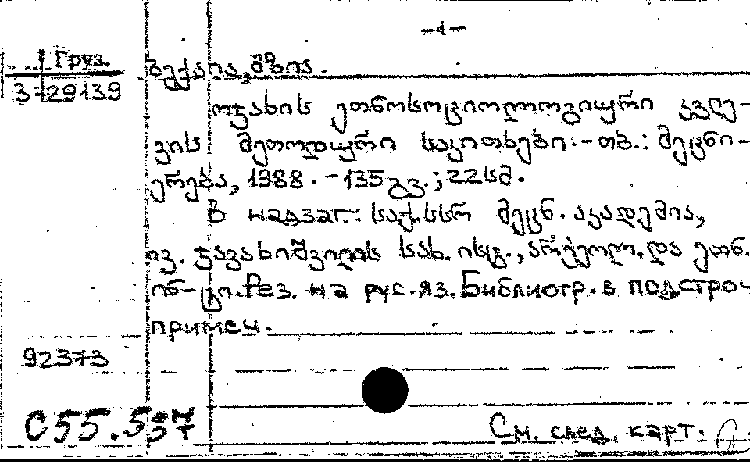 -1-
Груз.
3-29139
ბექაია, მზია.
ოჯახის ეთნოსოციოლოგიური კვლე-
ვის მეთოდური საკითხები.-თბ.: მეცნი-
ერება, 1988.-135გვ.; 22სმ.
В надзаг.: საქ.სსრ მეცნ. აკადემია,
ივ. ჯავახიშვილის სახ. ისტ., არქეოლ. და ეთნ.
ინ-ტი. Рез. на рус.яз. Библиогр. в подстроч
примеч.
92373
С55.5
См. след. карт.